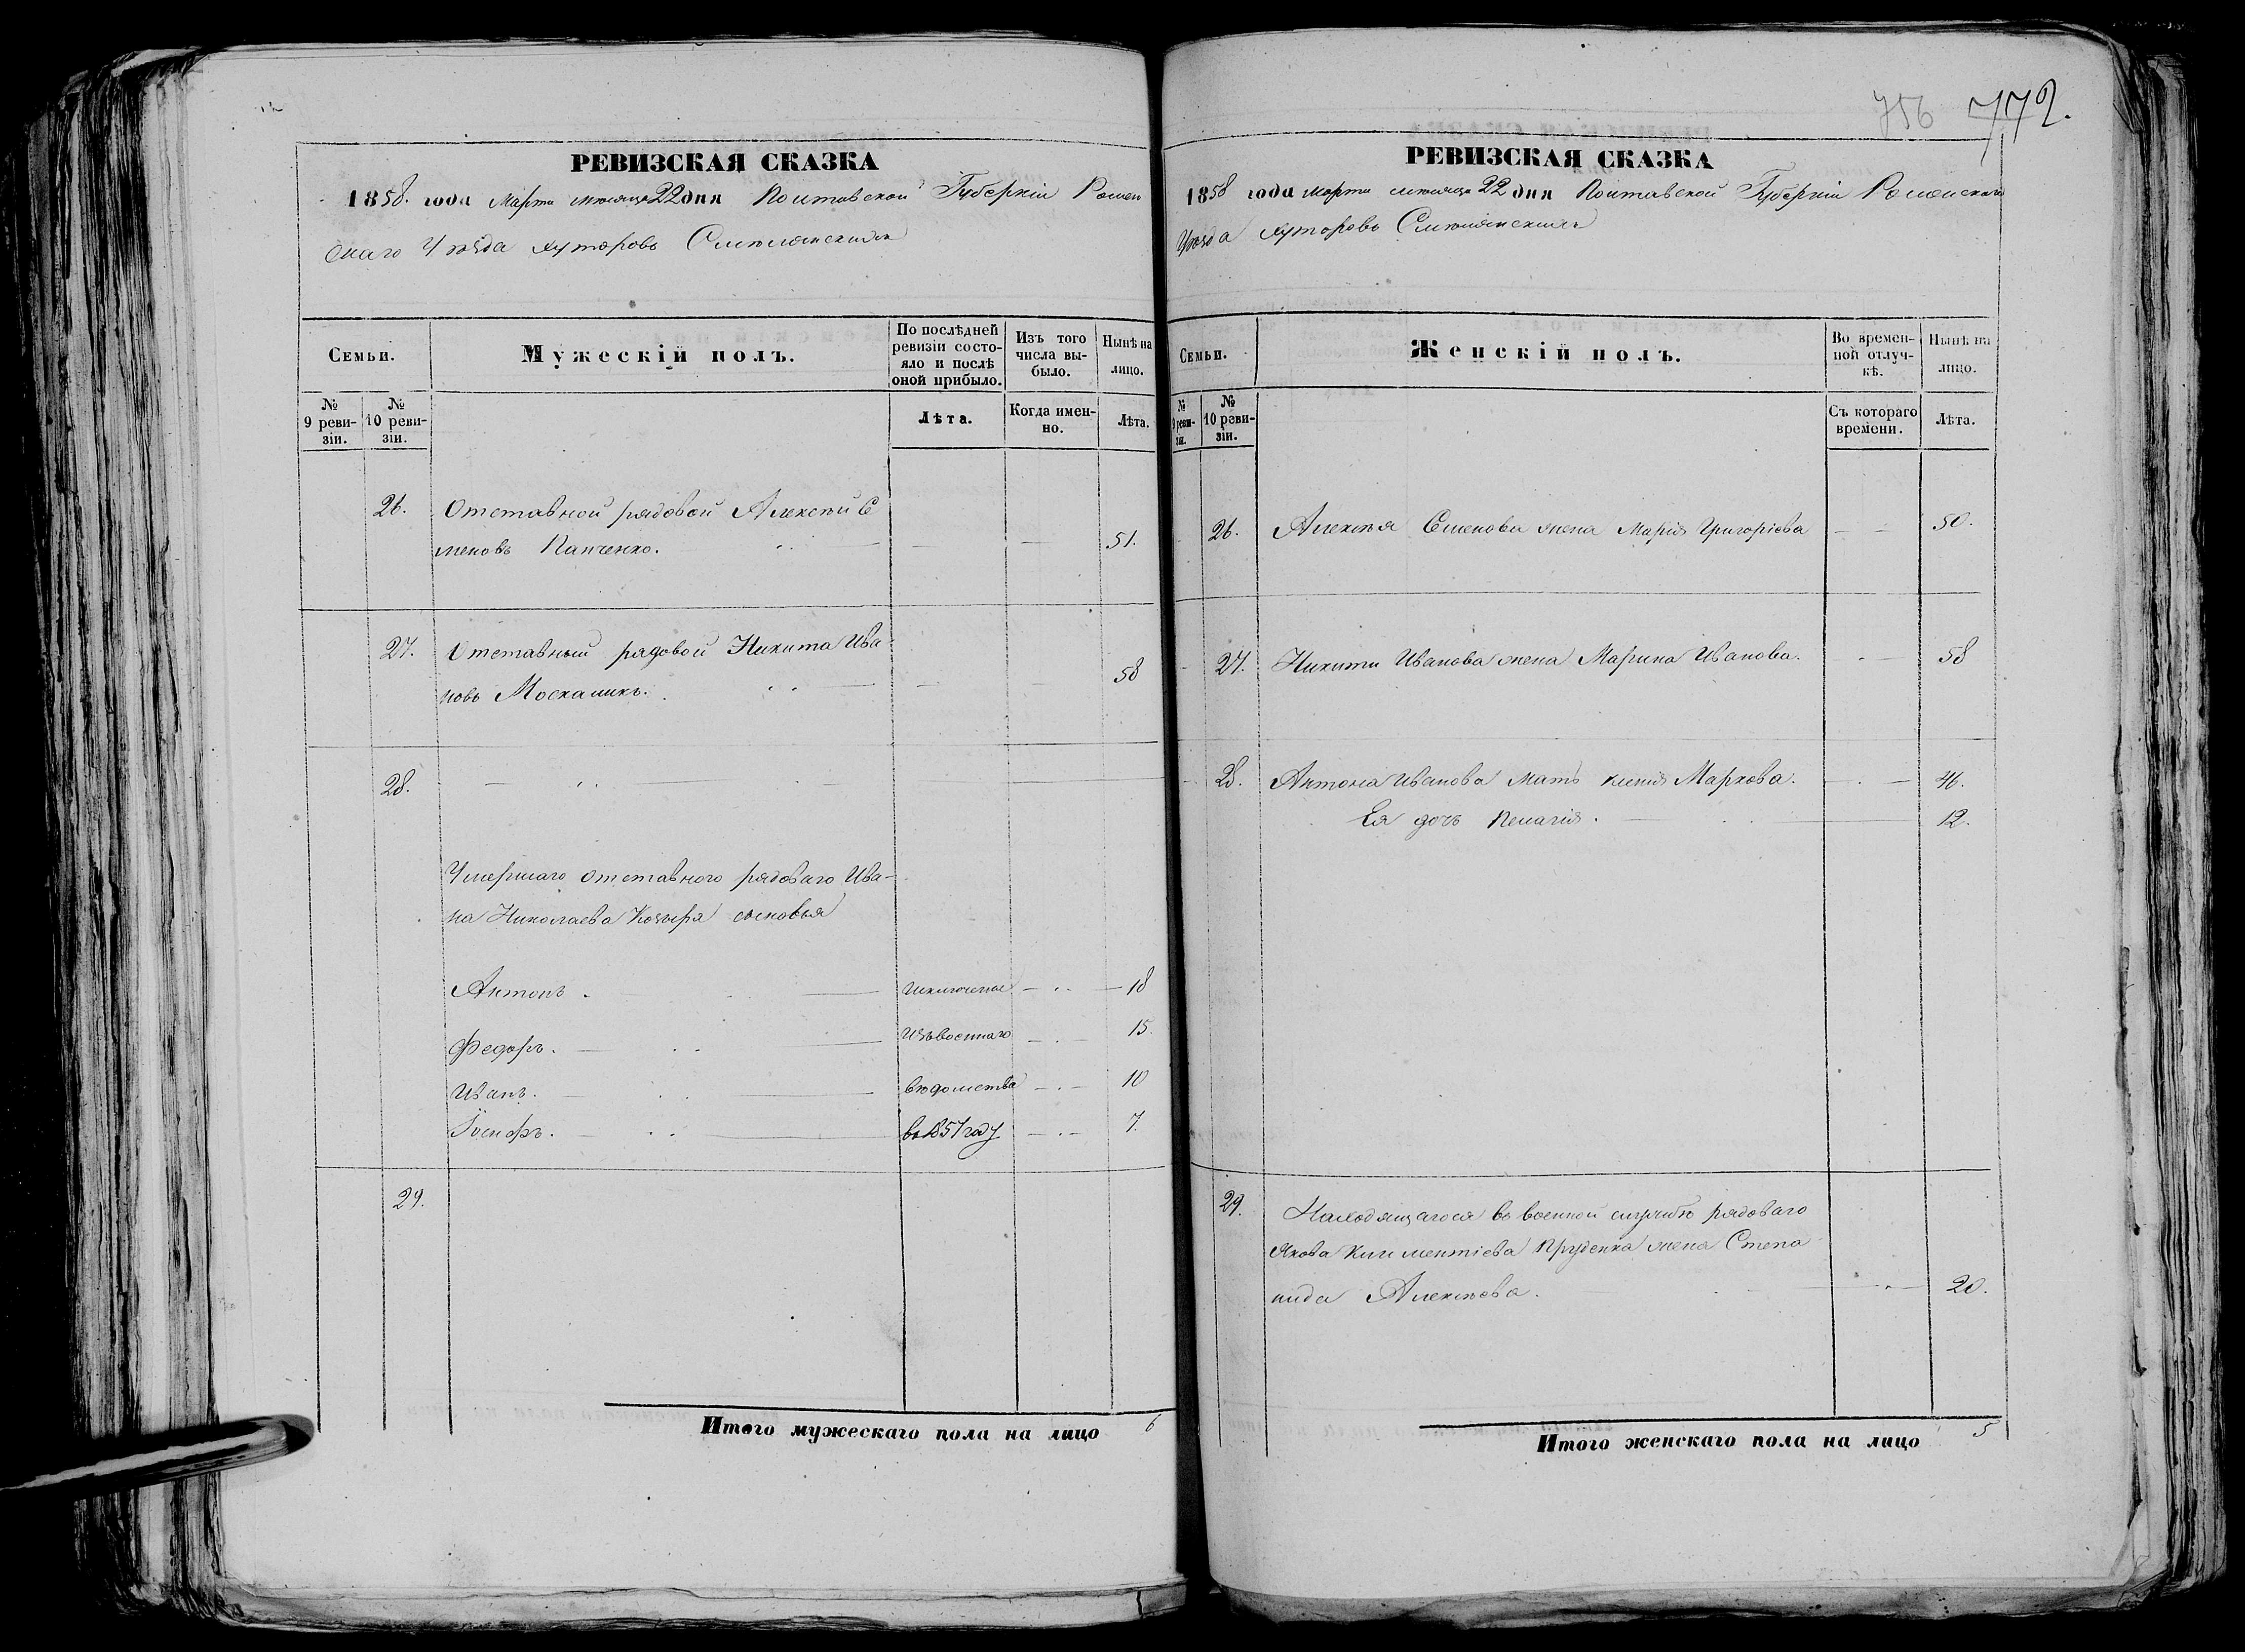 756 772.
РЕВИЗСКАЯ СКАЗКА
1858. года Марта мѣсяца 22 дня Полтавской Губерніи Ромен
скаго Уѣзда хуторовъ Смѣлянскихъ
Семьи.
Мужескій полъ.
По послѣдней ревизіи состо-
яло и послѣ
оной прибыло.
Изъ того
числа вы-
было.
Нынѣ на
лицо.
№
9 реви-
зіи.
№
10 реви-
зіи.
Лѣта.
Когда имен-
но.
Лѣта.
26. Отставной рядовой Алексѣй Се
меновъ Панченко. 51.
27. Отставный рядовой Никита Ива
новъ Москаликъ. 58
28.
Умершаго отставного рядоваго Ива-
на Николаева Козыря сыновья
Антонъ. исключены 18
Федоръ. изъ военнаго 15.
Иванъ. вѣдомства 10
Іосифъ. въ 1857 году 7.
29.
Итого мужескаго пола на лицо 6
РЕВИЗСКАЯ СКАЗКА
1858 года марта мѣсяца 22 дня Полтавской Губерніи Роменскаго
Уѣзда хуторовъ Смѣлянскихъ
Семьи.
Женскій полъ.
Во времен-
ной отлуч-
кѣ.
Нынѣ на
лицо.
№
9 реви-
зіи.
№
10 реви-
зіи.
Съ котораго
времени.
Лѣта.
26. Алексѣя Семенова жена Марія Григоріева 50.
27. Никиты Иванова жена Марина Иванова. 58
28. Антона Иванова мать Ксенія Маркова. 46.
Ея дочь Пелагія. 12.
29. Находящагося въ военной службѣ рядоваго
Якова Климентіева Пруденка жена Степа
нида Алексѣева. 20.
Итого женскаго пола на лицо 5